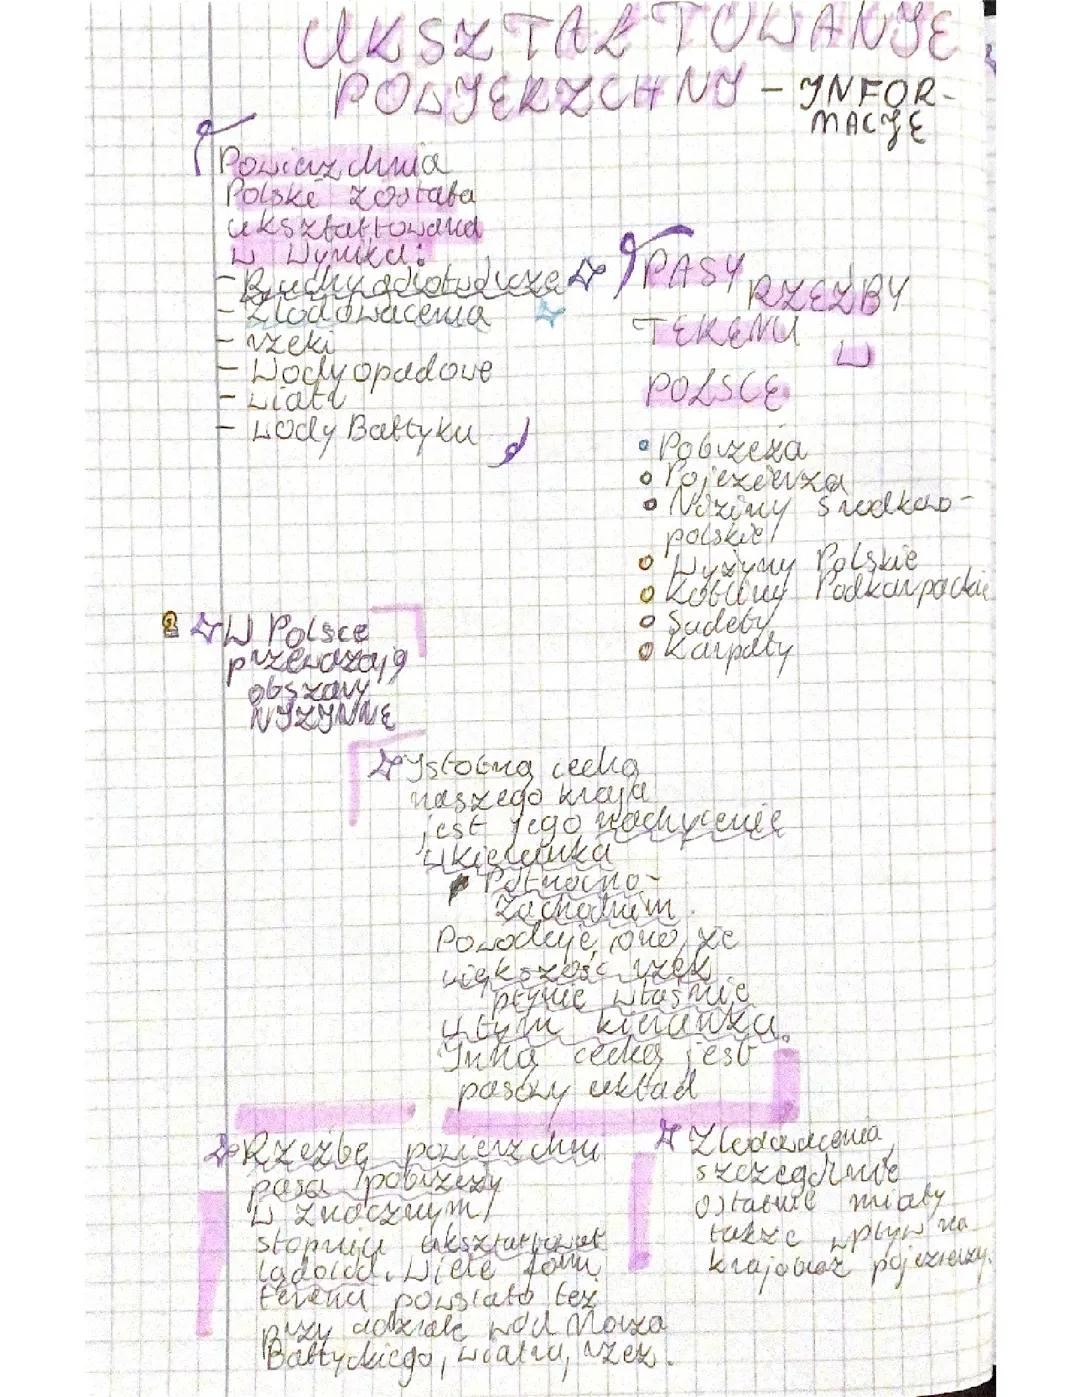 UKSZTAŁTOWANIE
POWIERZCHNI - INFOR-
MACJE
Powierzchnia
Polski została
ukształtowana
w wyniku:
- Ruchy górotwórcze
- Zlodowacenia
- rzeki
- Wody opadowe
- wiatr
- wody Bałtyku
PASY RZEŹBY
TERENU
W
POLSCE
Pobrzeża
Pojezierza
Niziny Środkowo-
polskie
Wyżyny Polskie
Kotliny Podkarpackie
Sudety
Karpaty
W Polsce
przeważają
obszary
NIZINNE
Istotną cechą
naszego kraju
jest jego nachylenie
w kierunku
Północno-
Zachodnim.
Powoduje ono, że
większość rzek
płynie właśnie
w tym kierunku.
Inną cechą jest
pasowy układ
Rzeźbę powierzchni
pasa pobrzeży
w znacznym
stopniu ukształtował
lądolód. Wiele form
terenu powstało też
przy udziale wód Morza
Bałtyckiego, wiatru, rzek.
Zlodowacenia,
szczególnie
ostatnie miały
także wpływ na
krajobraz pojezierzy.